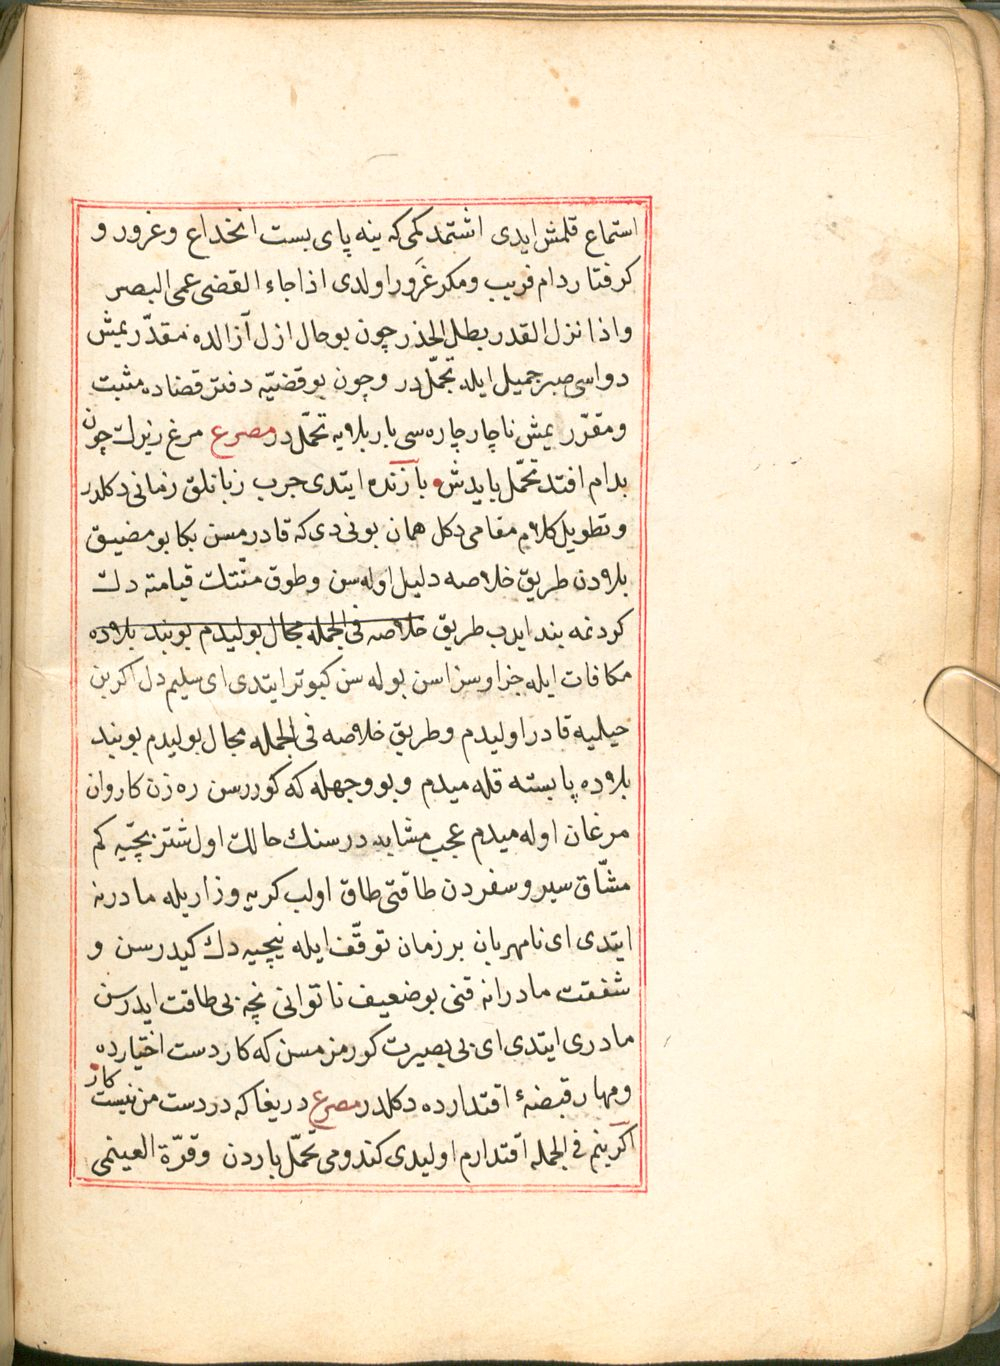 استماع قلمش ايدى اشتمدكمى كه ينه پاى بست انخداع و غرور و
كرفتار دام فريب و مكر غَرور اولدى اذا جاء القضى عمى البصر
و اذا نزل القدر بطل الحذر چون بو حال ازل آزالده مقدّر يمش
دواسى صبر جميل ايله تجمّلدر و چون بو قضيّه دفتر قضاده مثبت
و مقرّر يمش ناچار چاره سى بار بلايه تحمّلدر مصرع مرغ زيرك چون
بدام افتد تحمّل بايدش بازنده ايتدى جرب زبانلق زمانى دكلدر
و تطويل كلام مقامى دكل همان بونى دى كه قادرمسن بكا بو مضيق
بلادن طريق خلاصه دليل اوله سن و طوق منّتك قيامته دك
كردنمه بند ايدب طريق خلاصه فى الجمله مجال بوليدم بو بند بلاده
مكافات ايله جزا و سزاسن بوله سن كبوتر ايتدى اى سليم دل اكر بن
حيليه قادر اوليدم و طريق خلاصه فى الجمله مجال بوليدم بو بند
بلاده پا بسته قلميدم و بو وجهله كه كوررسن ره زن كاروان
مرغان اوله ميدم عجب مشابهدر سنك حالك اول شتر بچّيه كم
مشّاق سير و سفردن طاقتى طاق اولب كريه و زاريله مادرنه
ايتدى اى نامهربان بر زمان توقّف ايله نيچيه دك كيدرسن و
شفقت مادرانه قنى بو ضعيف ناتوانى نچه بى طاقت ايدرسن
مادرى ايتدى اى بى بصيرت كورمزمسن كه كار دست اختيارده
و مهار قبضهٔ اقتدارده دكلدر مصرع دريغا كه در دست من نيست كار
اكر بنم فى الجمله اقتدارم اوليدى كندومى تحمّل باردن و قرّة العينمى